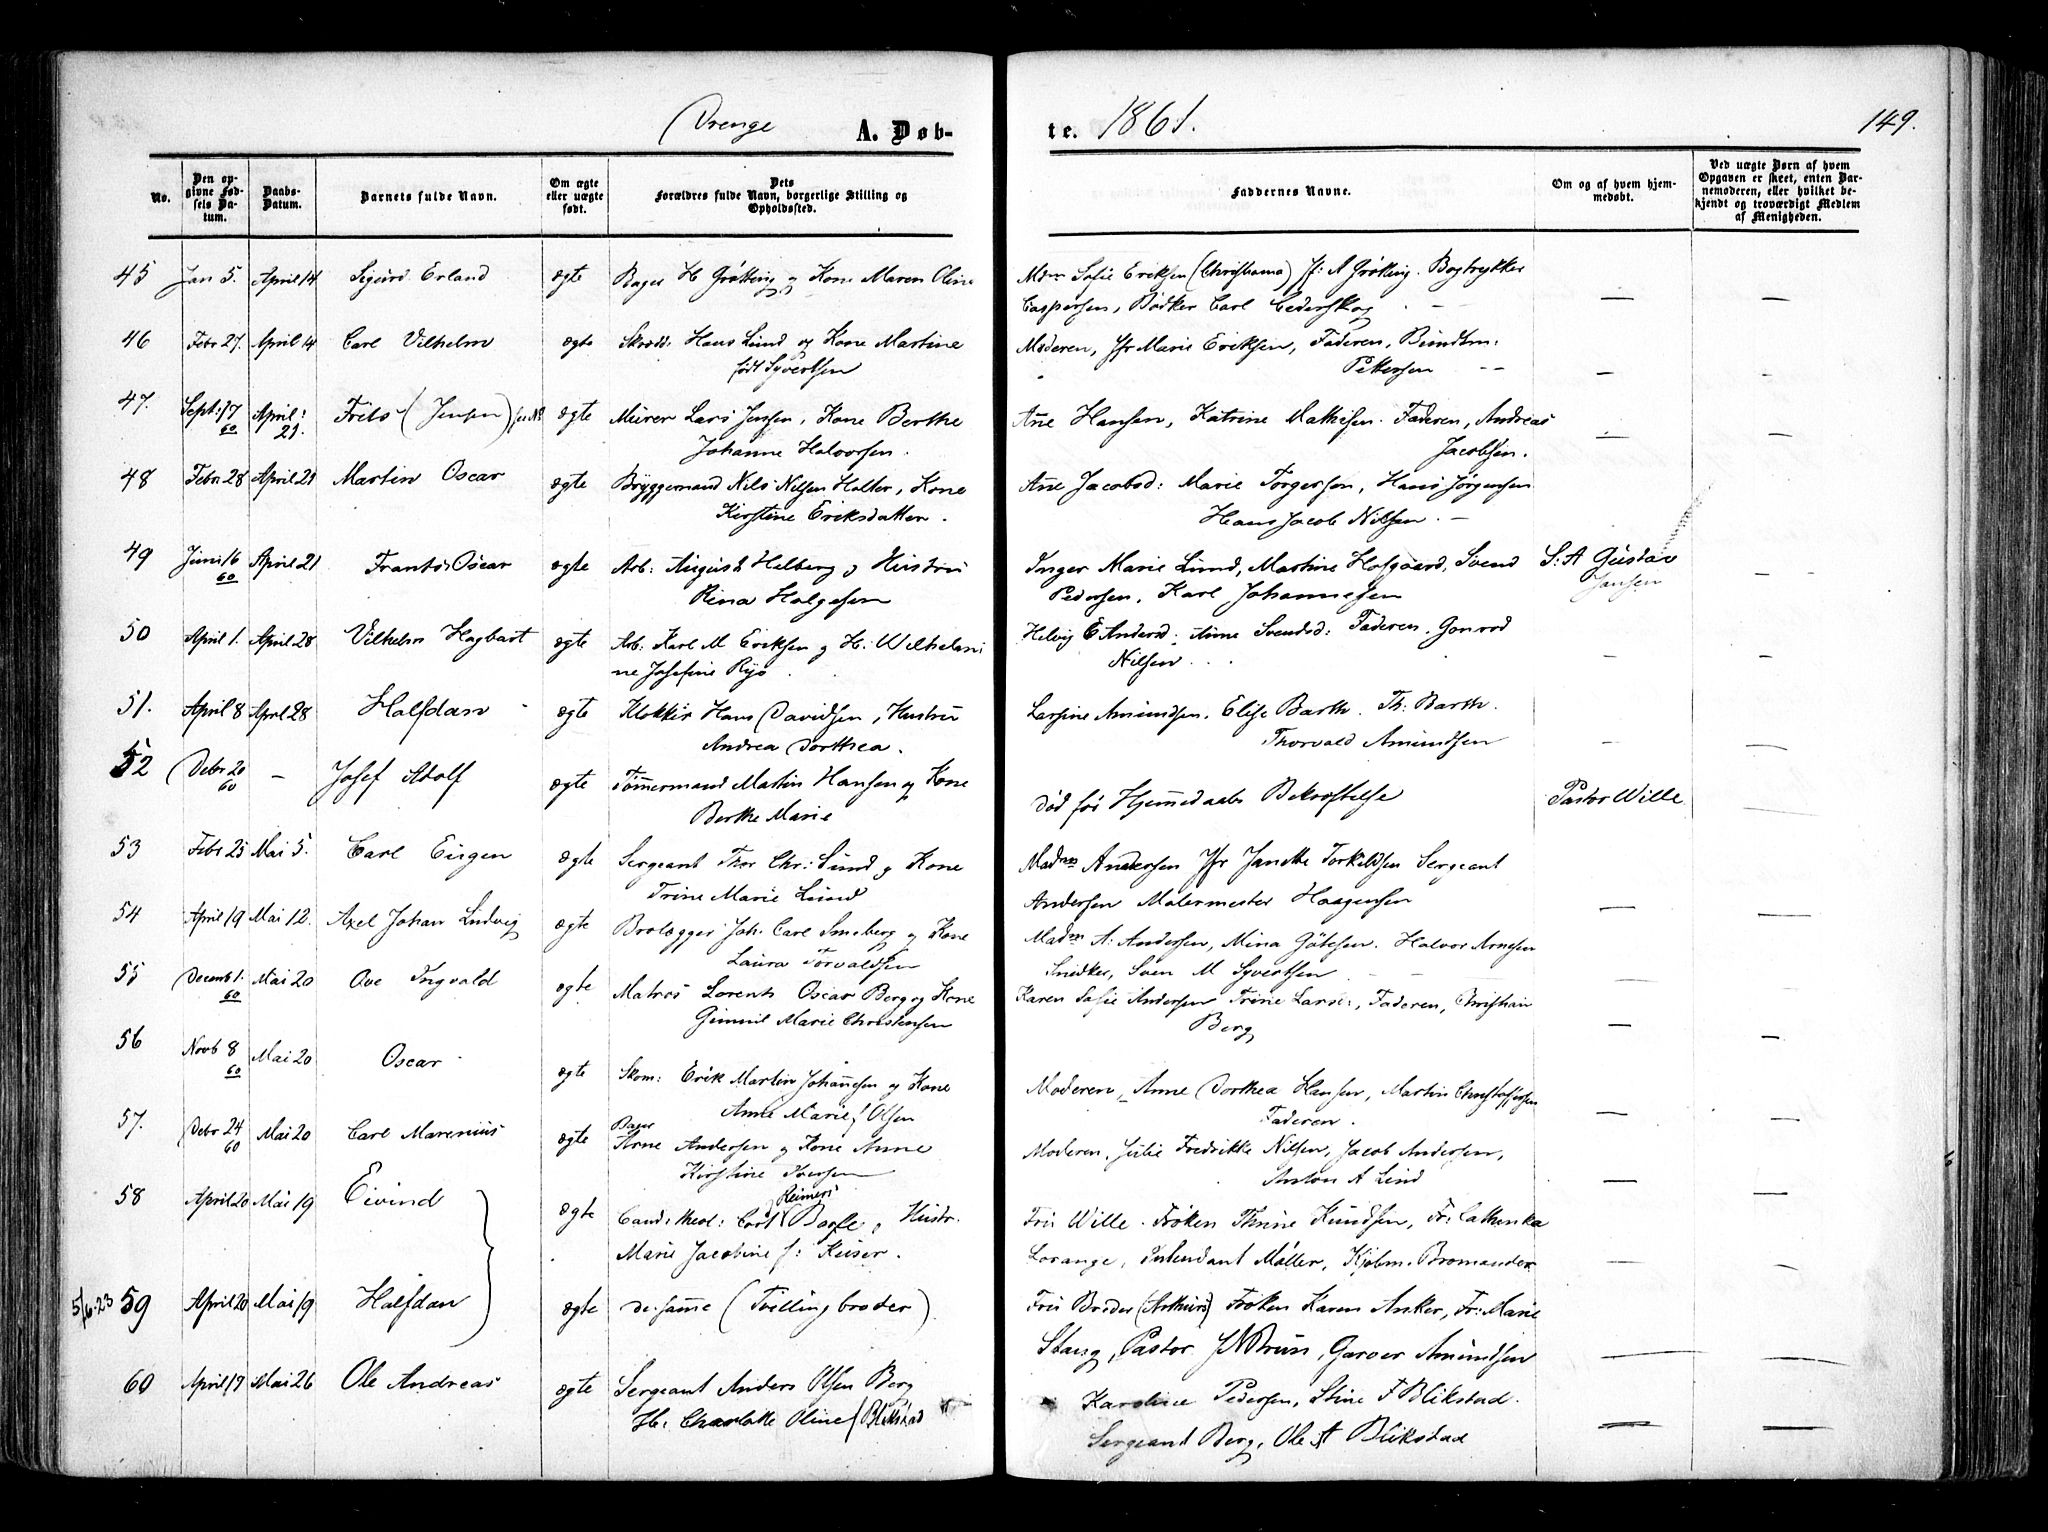 Drenge A. Døb- te. 1861. 149.
No. Den opgivne Fødsels Datum. Daabs-Datum. Barnets fulde Navn. Om ægte eller uægte født. Dets Forældres fulde Navn, borgerlige Stilling og Opholdssted. Faddernes Navne. Om og af hvem hjemmedøbt. Ved uægte Børn af hvem Opgaven er skeet, enten Barnemoderen, eller hvilket bekjendt og troværdigt Medlem af Menigheden.
45 Jan 5. April 14 Sigurd Erland ægte Bager H Grøtting og Kone Maren Oline Mdm Sofie Eriksen (Christiania) Jf: A Grøtting. Bogtrykker —
Caspersen, Bødker Carl Cederskog — —
46 Febr 27. April 14 Carl Vilhelm ægte Skrædd. Hans Lund og Kone Martine Moderen, Jfr Marie Eriksen, Faderen, Bundtm:
født Syvertsen Pettersen — —
47. Sept: 17 April: Frits (Jensen) ægte Murer Lars Jensen, Kone Berthe Ane Hansen, Katrine Mathisen. Faderen, Andreas
60 21. Johanne Halvorsen. Jacobsen. — —
48 Febr 28 April 21 Martin Oscar ægte Bryggemand Nils Nilsen Holter, Kone Ane Jacobsd: Marie Torgersen, Hans Jørgensen
Kirstine Eriksdatter. Hans Jacob Nilsen. —
49 Juni 16 April 21 Frants Oscar ægte Arb: August Helberg og Hustru Inger Marie Lund, Martine Hofgaard, Svend S: A Gustav
60 Rina Holgesen Pedersen, Karl Johannesen Jansen — —
50 April 1. April 28 Vilhelm Hagbart ægte Arb: Karl M Eriksen og H: Wilhelmi Helvig E Andersd: Anne Svendsd: Faderen. Gonrod
ne Josefine Ryo Nilsen — —
51. April 8 April 28 Halfdan ægte Klokker Hans Davidsen, Hustru Larsine Amundsen. Elise Barth. Th: Barth.
Andrea Dorthea. Thorvald Amundsen — —
52 Debr 20 — Josef Adolf ægte Tømmermand Martin Hansen og Kone Død før Hjemmedaabs Bekræftelse Pastor Wille —
60 Berthe Marie
53 Febr 25 Mai 5. Carl Eugen ægte Sergeant Thor Chr: Lund og Kone Madm Andersen Jfr Janette Torkildsen Sergeant
Trine Marie Lund Andersen Malermester Haagensen — —
54 April 19 Mai 12. Axel Johan Ludvig ægte Brolægger Joh. Carl Smeberg og Kone Madm A: Andersen, Mina Götesen. Halvor Arnesen
Laura Torvaldsen Snidker, Sven M Syvertsen — —
55 Decemb 1. Mai 20 Ove Ingvald ægte Matros Lorents Oscar Berg og Kone Karen Sofie Andersen Trine Lars:, Faderen, Christian
60 Gunnil Marie Christensen Berg — —
56 Novb 8 Mai 20 Oscar ægte Skom: Erik Martin Johannesen og Kone Moderen, Anne Dorthea Hansen, Martin Christoffersen
60 Anne Marie f Olsen Faderen. — —
57. Debr 24 Mai 20 Carl Marenius ægte Arne Andersen og Kone Anne Moderen. Julie Fredrikke Nilsen, Jacob Andersen,
60 Kirstine Iversen Anton A Lind — —
58 April 20 Mai 19 Eivind ægte Cand: theol: Carl Reimers Basse, Hustr. Fru Wille. Frøken Thrine Knudsen, Fr: Cathinka
Marie Jacobine f: Keiser. Lorange, Intendant Møller, Kjøbm. Bromander
5/6.23 59 April 20 Mai 19 Halfdan ægte de samme (Tvillingbroder) Fru Broder (Arthurs) Frøken Karen Anker, Fr: Marie
Stang, Pastor J N Brun, Garver Amundsen — —
60 April 19 Mai 26 Ole Andreas ægte Sergeant Anders Olsen Berg Karoline Pedersen, Stine F Blikstad.
H: Charlotte Oline f Blikstad Sergeant Berg, Ole A Blikstad — —